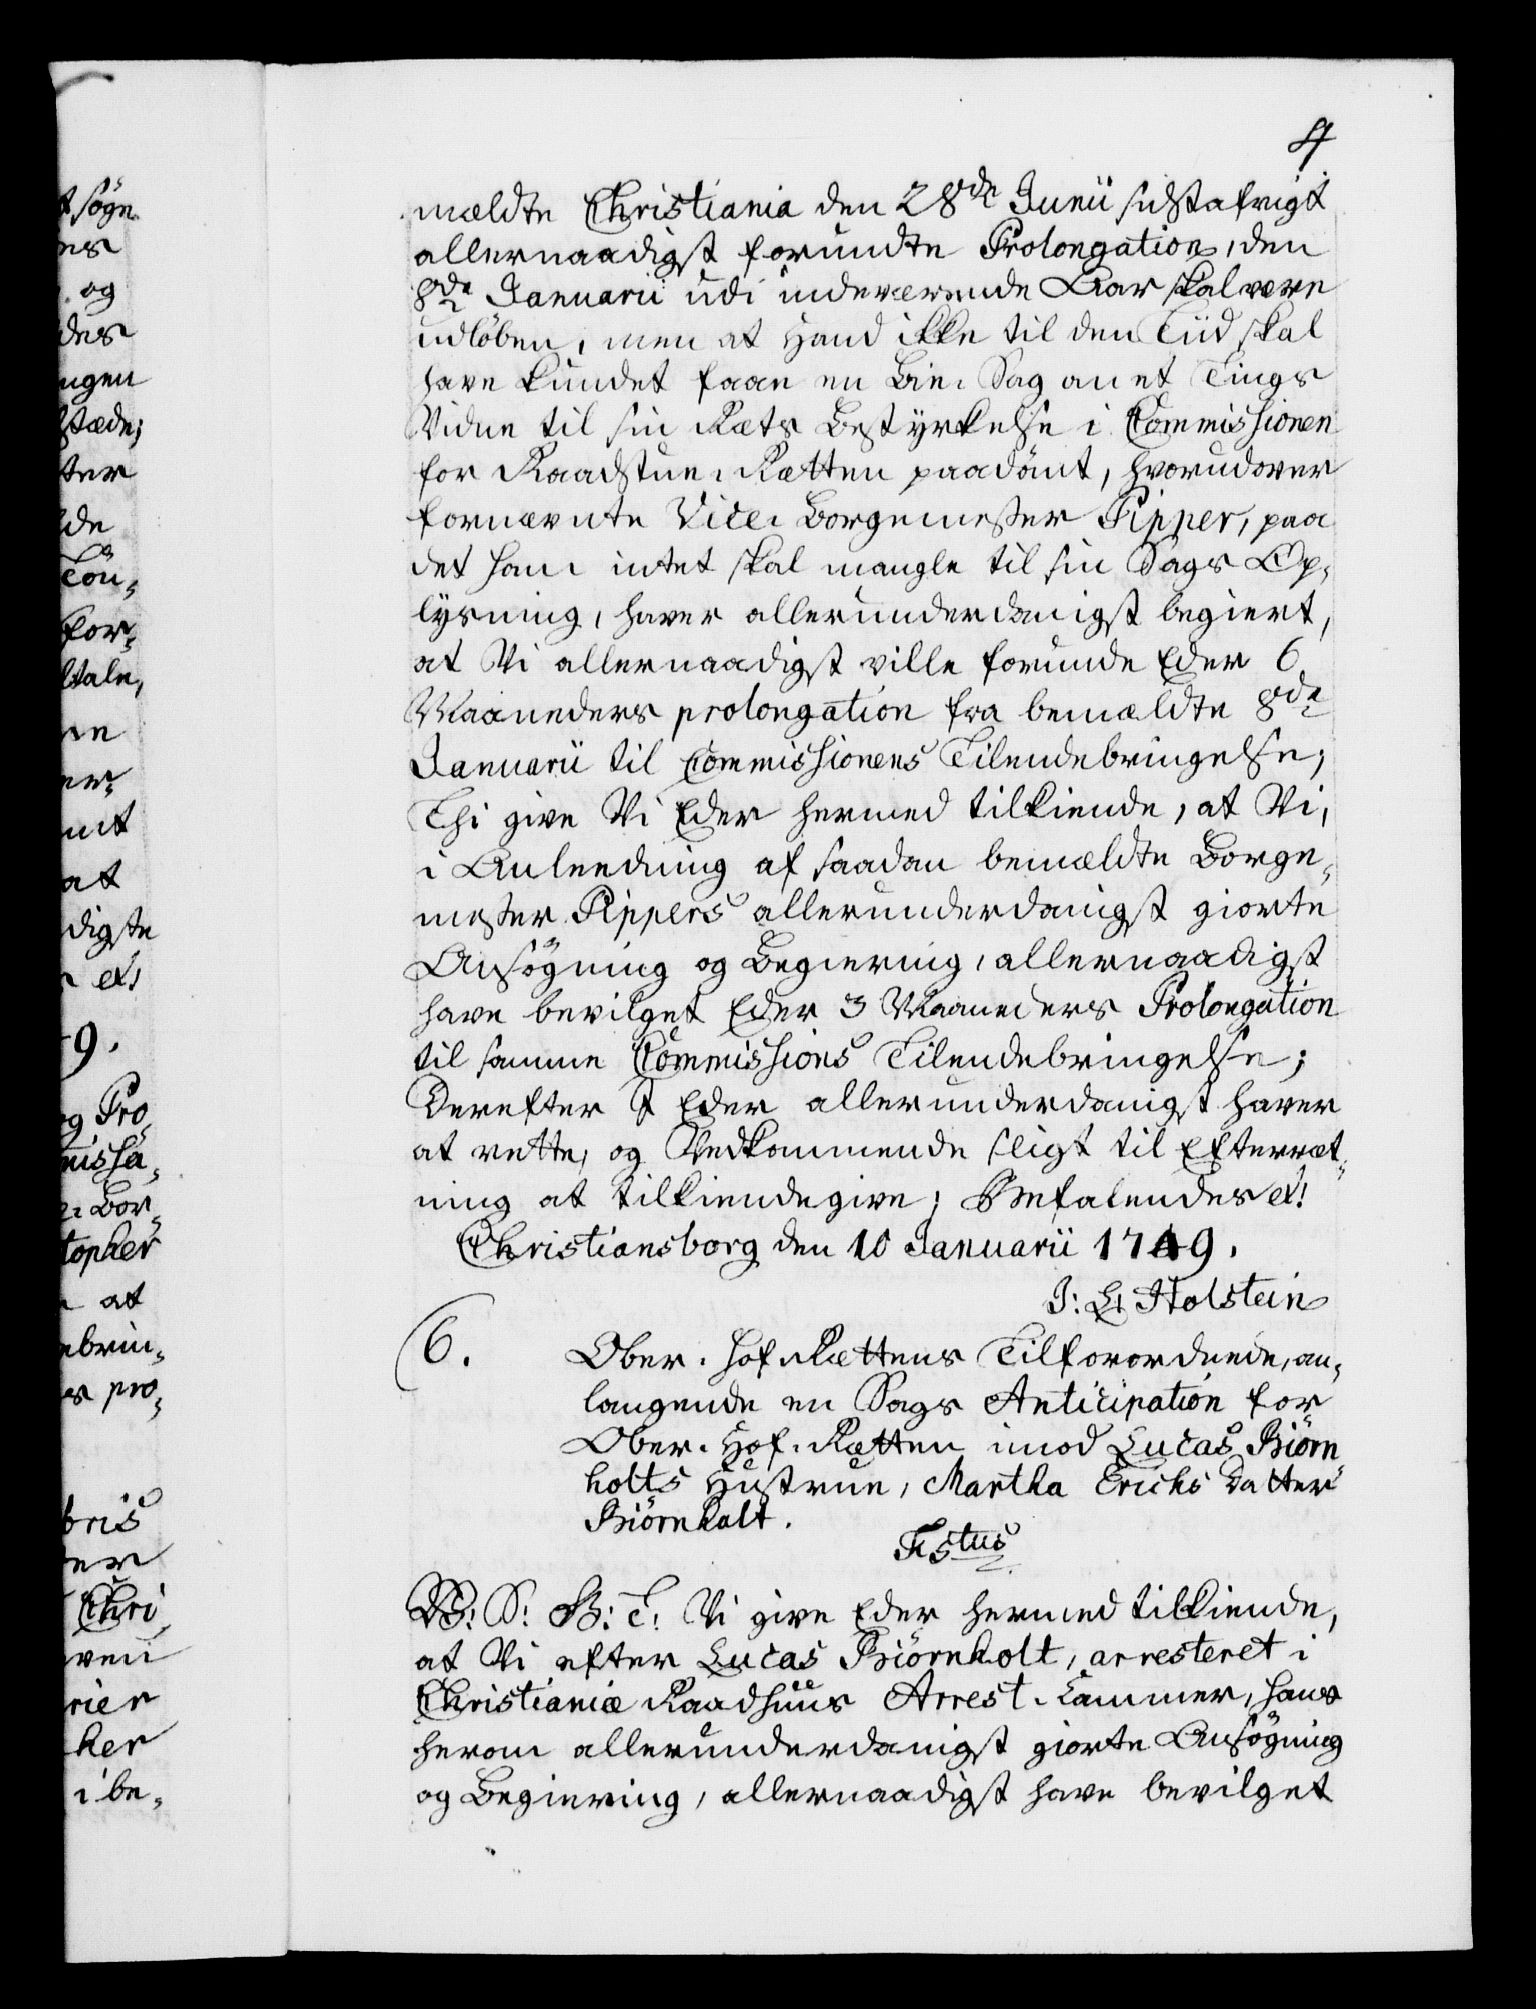 4
mældte Christiania den 28de Junii sidstafvigt
allernaadigst forundte Prolongation, den
8de Januarii udi indeværende Aar skal være
udlöben, men at Hand ikke til den Tiid skal
have kundet faae en bie Sag an et Tings
Vidne til sin Rets Bestyrkelse i Commissionen
for Raadstue Rætten paadömt, hvorudover
fornævnte Vice Borgemester Pipper, paa
det ham intet skal mangle til sin Sags Op-
lysning, haver allerunderdanigst begiert,
at Vi allernaadigst ville forunde Eder 6
Maaneders prolongation fra bemældte 8de
Januarii til Commissionens Tilendebringelse;
Thi give Vi Eder hermed tilkiende, at Vi,
i Anleedning af saadan bemældte Borge-
mester Pippers allerunderdanigst giorte
Ansögning og Begiering, allernaadigst
have bevilget Eder 3 Maaneders Prolongation
til samme Commissions Tilendebringelse;
Derefter I Eder allerunderdanigst haver
at rette, og Vedkommende sligt til Efterræt-
ning at tilkiendegive; Befalendes etc
Christiansborg den 10 Januarii 1749.
J: L: Holstein
6.
Ober-Hof-Rættens Tilforordnede, an-
langende en Sags Anticipation for
Ober-Hof-Rætten imod Lucas Biörn
holts Hustrue, Martha Erichs Datter
Biörnholt.
F5tus
V: S: G: T: Vi give Eder hermed tilkiende,
at Vi efter Lucas Biörnholt, arresteret i
Christianiæ Raadhuus Arrest-Cammer, hans
herom allerunderdanigst giorte Ansögning
og Begiering, allernaadigst have bevilget